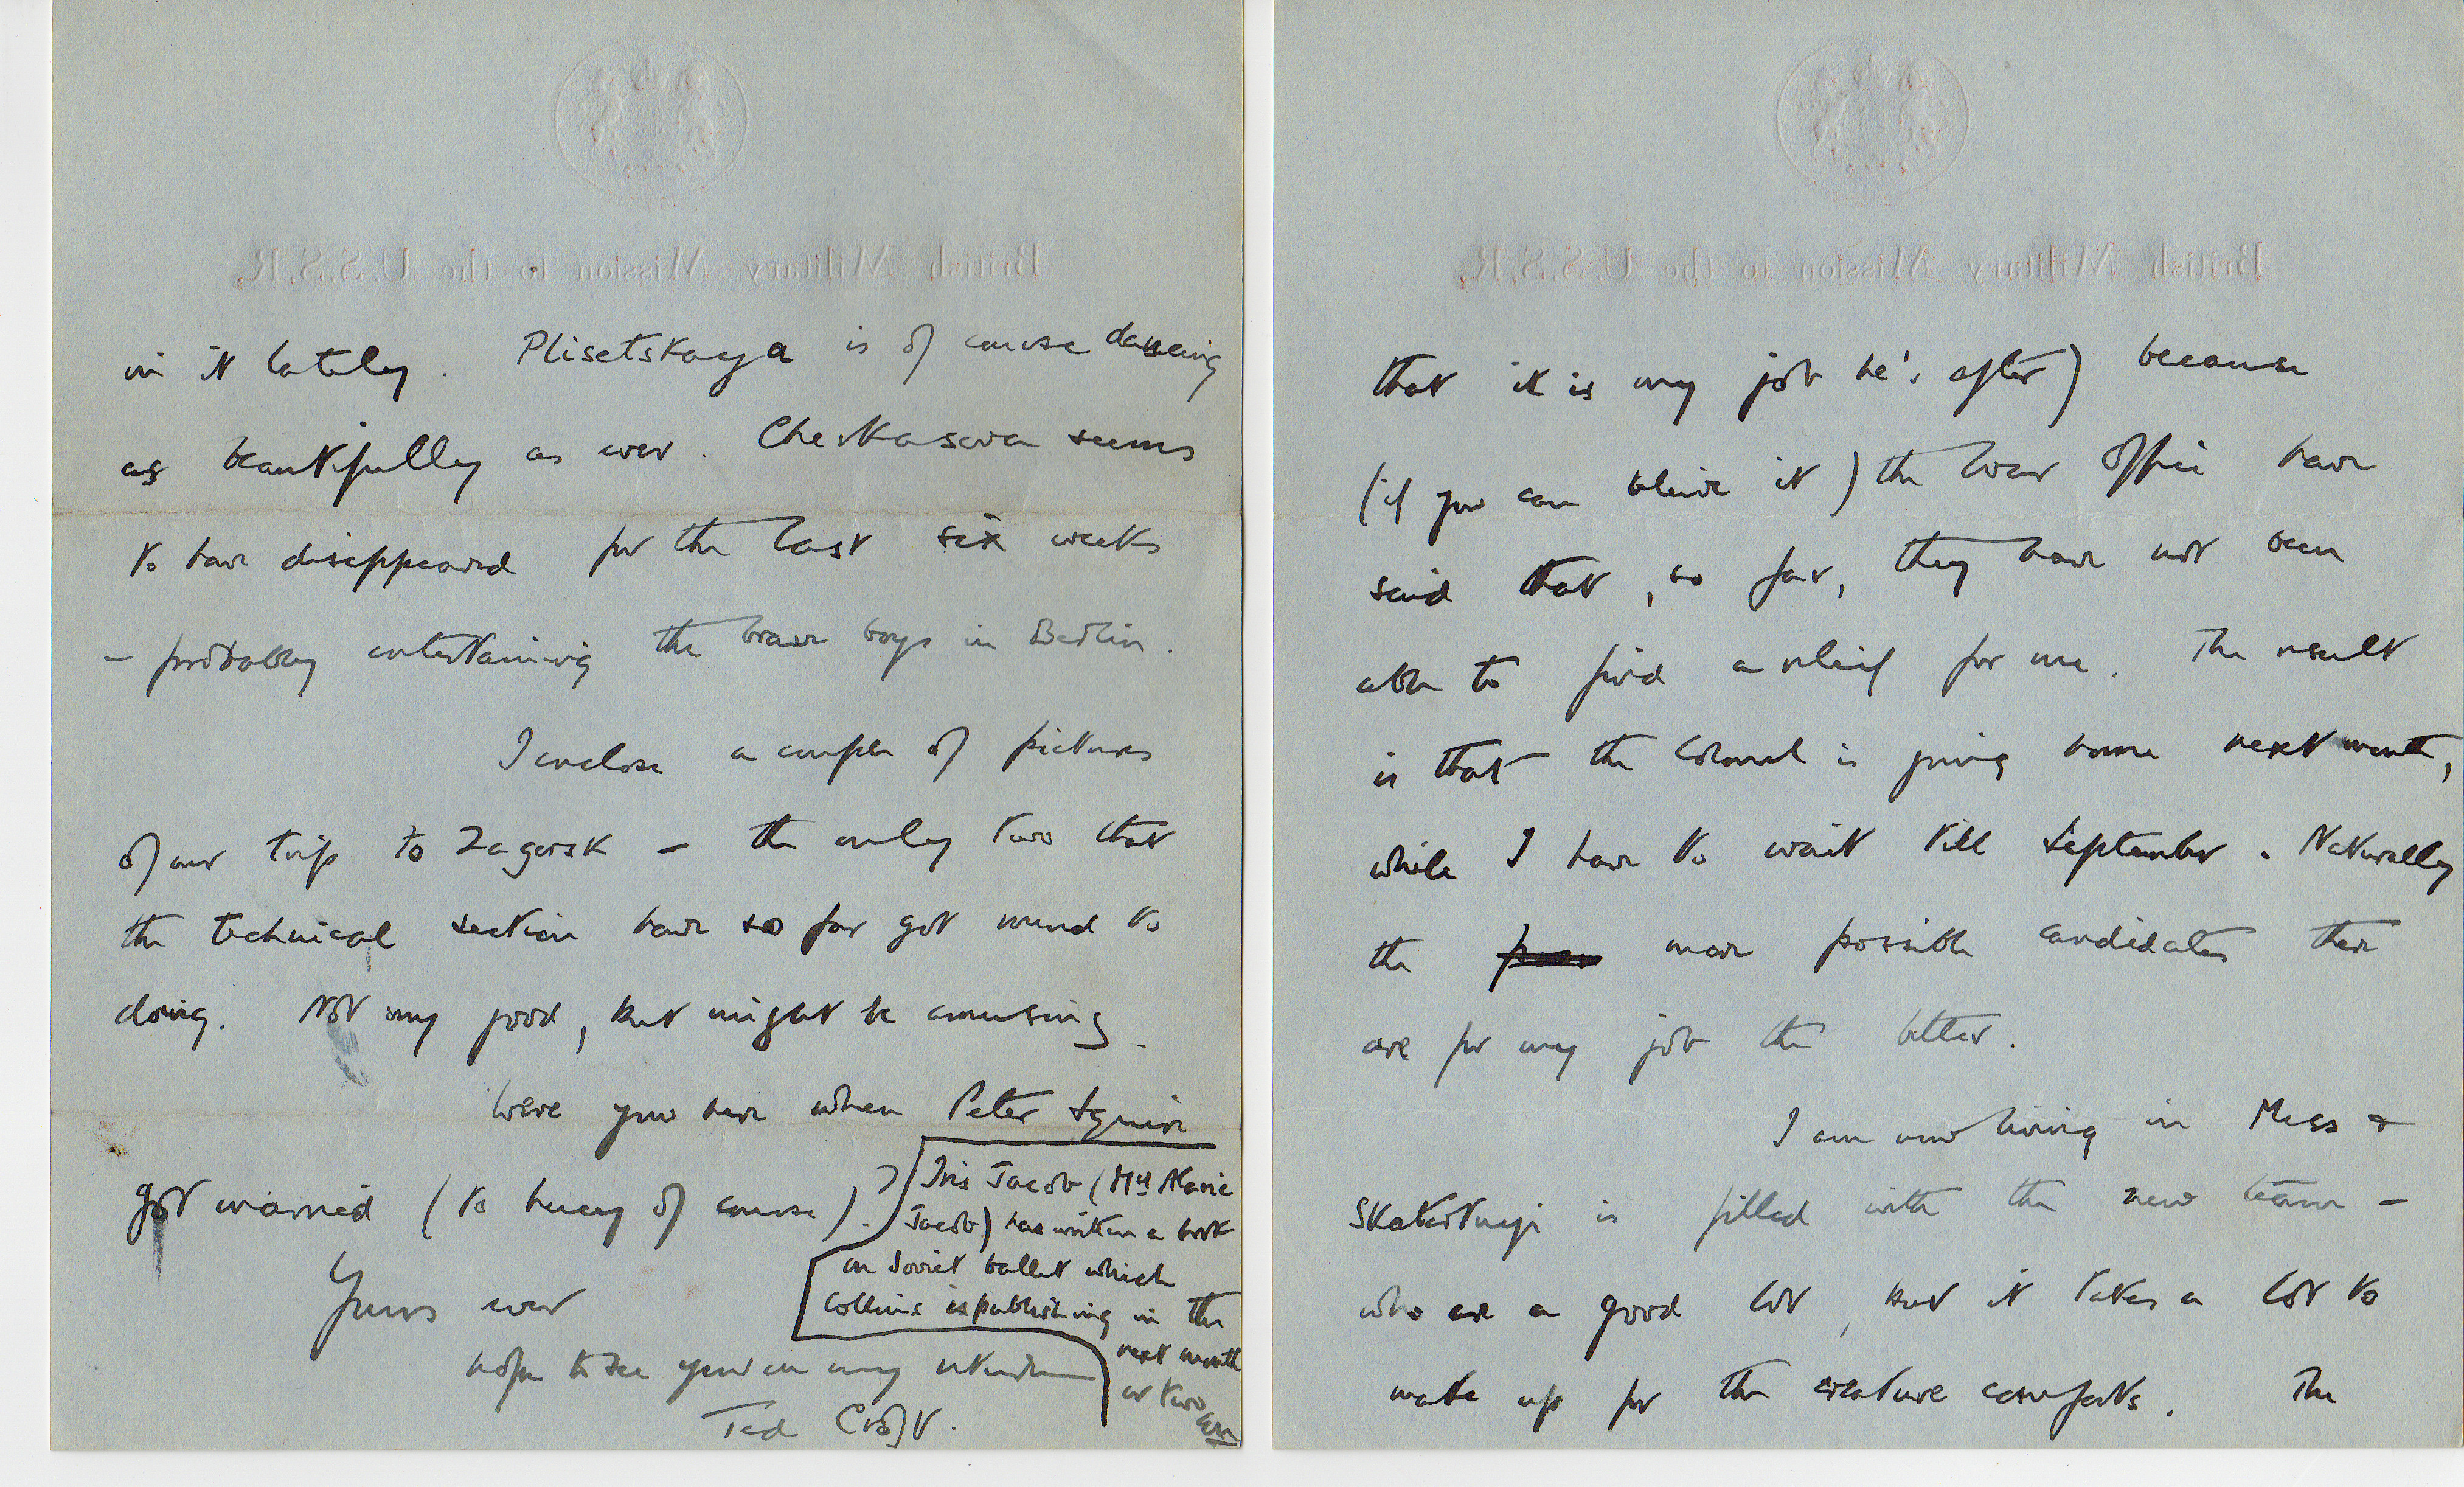 British Military Mission to the U.S.S.R.
in it lately. Plisetskaya is of course dancing
as beautifully as ever. Cherkasova seems
to have disappeared for the last six weeks
– probably entertaining the brave boys in Berlin.
I enclose a couple of pictures
of our trip to Zagorsk – the only two that
the technical section have so far got round to
doing. Not my good, but might be amusing.
Were you here when Peter Squire
got married (to Lucy of course)?
Yours ever
hope to see you on my return
Ted Croft.
Iris Jacob (Mrs Alaric
Jacob) has written a book
on Soviet ballet which
Collins is publishing in the
next month
or two
British Military Mission to the U.S.S.R.
that it is my job he's after) because
(if you can believe it) the War Office have
said that, so far, they have not been
able to find a relief for me. The result
is that the Colonel is going home next month,
while I have to wait till September. Naturally
the more possible candidates there
are for my job the better.
I am now living in Mess &
Skatertnyi is filled with the new team –
who are a good lot, but it takes a lot to
make up for the creature comforts. The